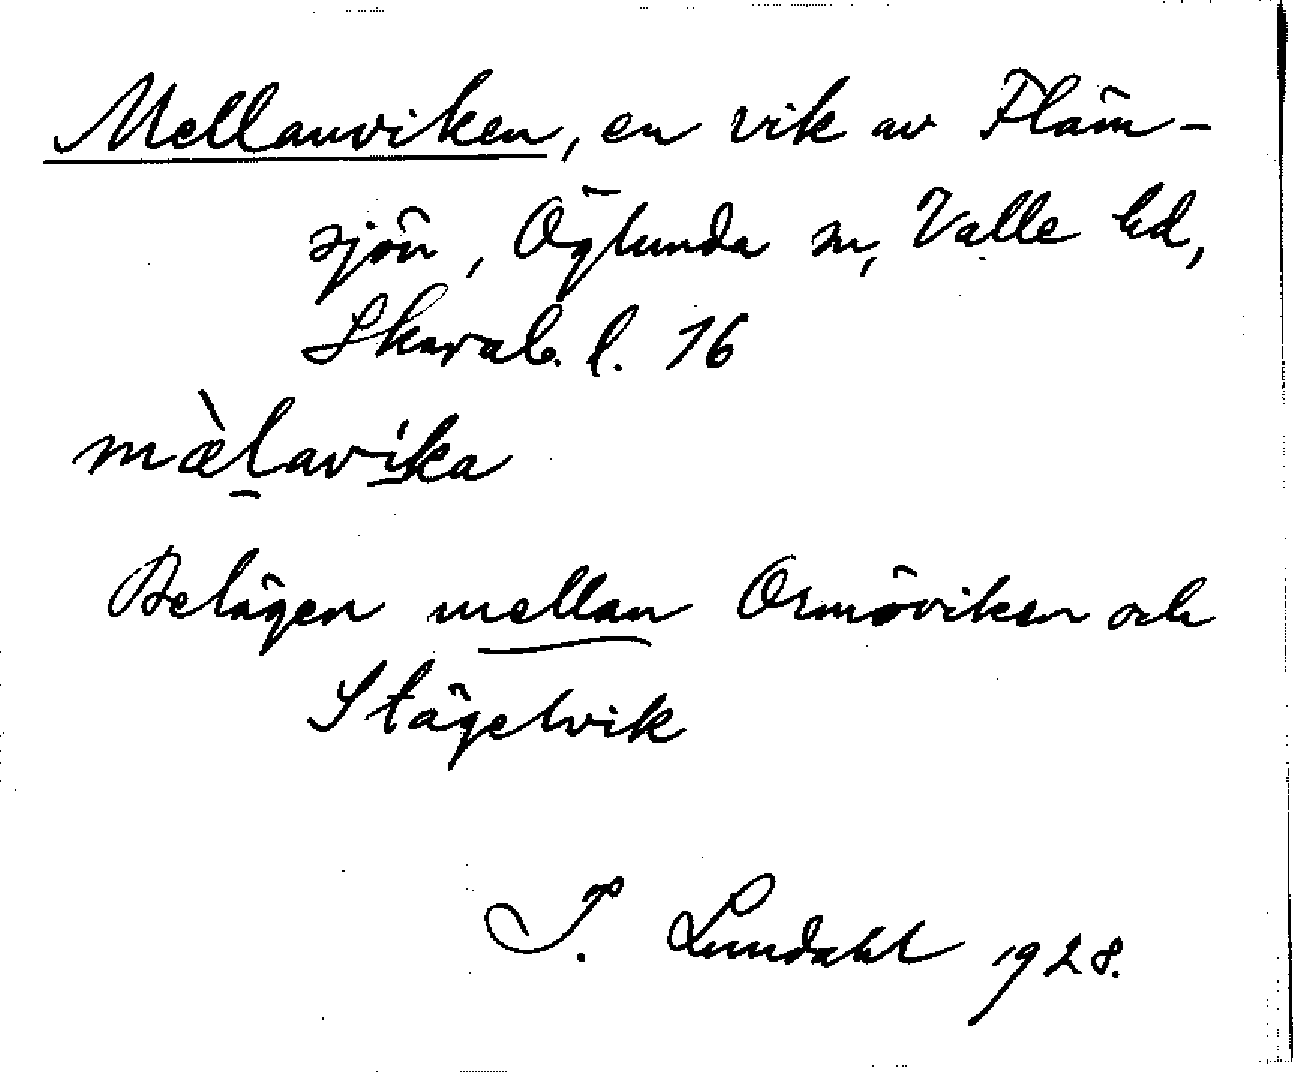 Mellanviken, en vik av Fläm-
sjön, Öglunda sn, Valle hd,
Skarab. l. 16
mæ̀lavika
Belägen mellan Ormöviken och
Stägelvik
I. Lundahl 1928.